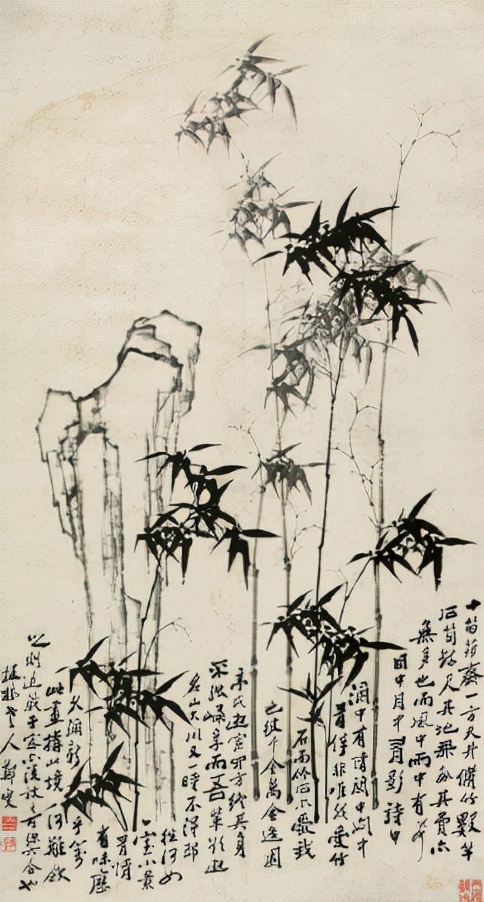 十笏茅齋一方天井脩竹數竿
石筍數尺其地無多其費亦
無多也而風中雨中有聲
日中月中有影詩中
酒中有情閒中悶中
有伴非唯我愛竹
石即竹石亦愛我
也彼千金萬金造園
亭或遊宦四方終其身
不能歸享而吾輩欲遊
名山大川又一時不得即
往何如
一室小景
有情
有味歷
久彌新乎對
此畫搆此境何難斂
之則退藏于密亦復放之可彌六合也
板橋老人鄭燮